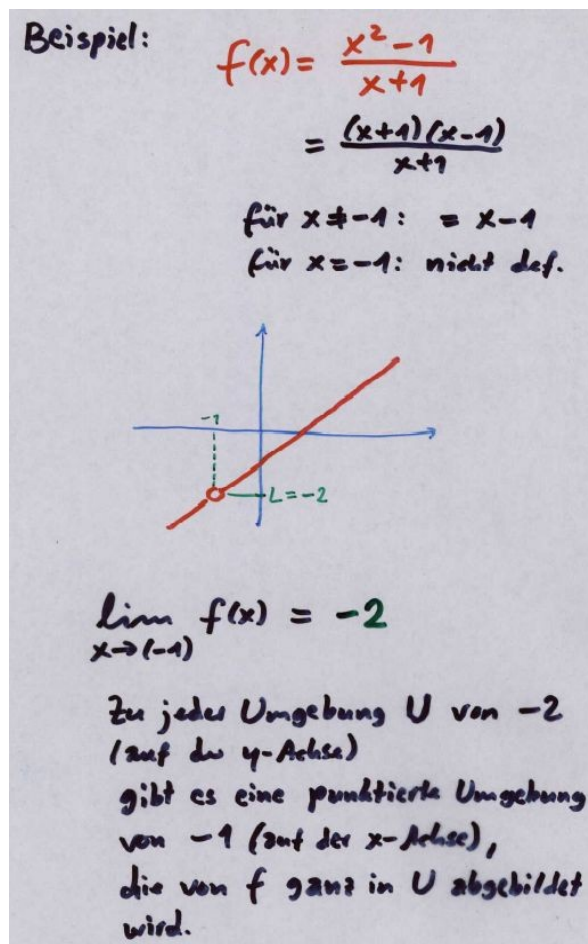 Beispiel:
f(x) = (x² - 1)/(x + 1)
= ((x+1)(x-1))/(x+1)
für x ≠ -1: = x-1
für x = -1: nicht def.
-1
L = -2
lim f(x) = -2
x → (-1)
Zu jeder Umgebung U von -2
(auf der y-Achse)
gibt es eine punktierte Umgebung
von -1 (auf der x-Achse),
die von f ganz in U abgebildet
wird.